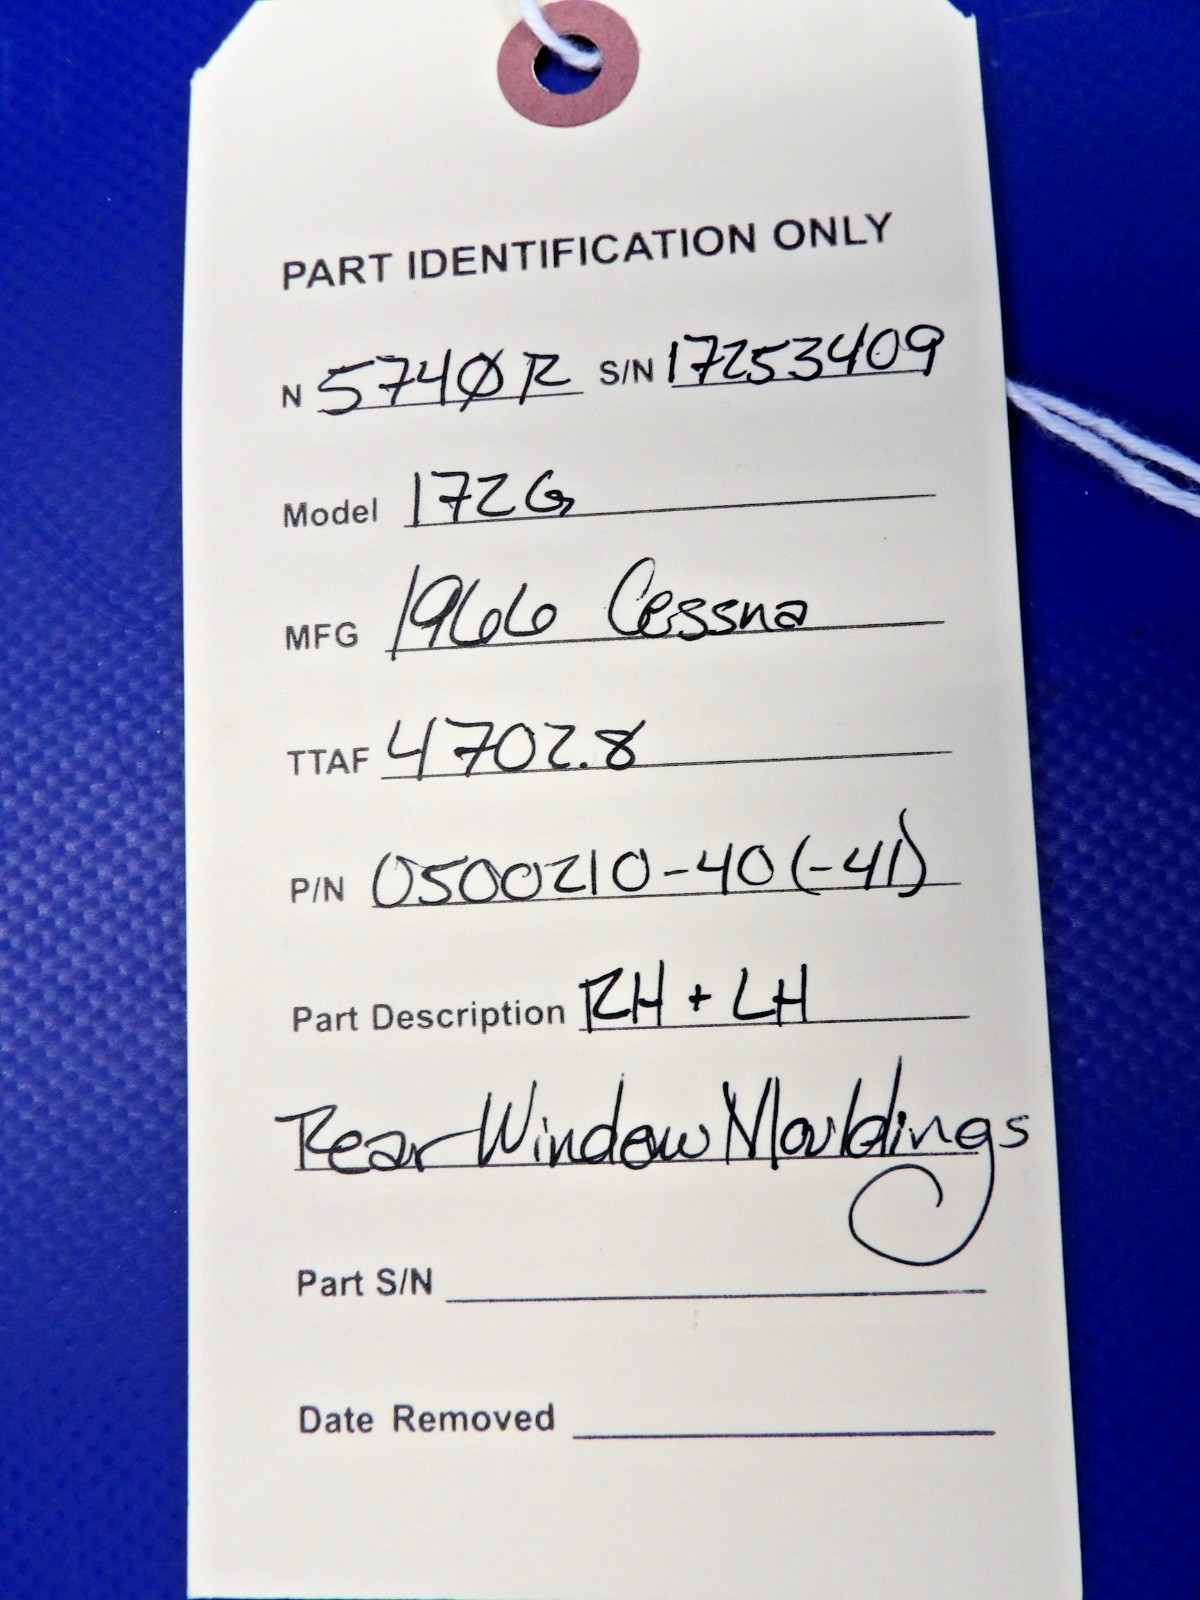 PART IDENTIFICATION ONLY
N 5740R S/N 17253409
Model 172G
MFG 1966 Cessna
TTAF 4702.8
P/N 0500210-40 (-41)
Part Description RH + LH
Rear Window Mouldings
Part S/N
Date Removed